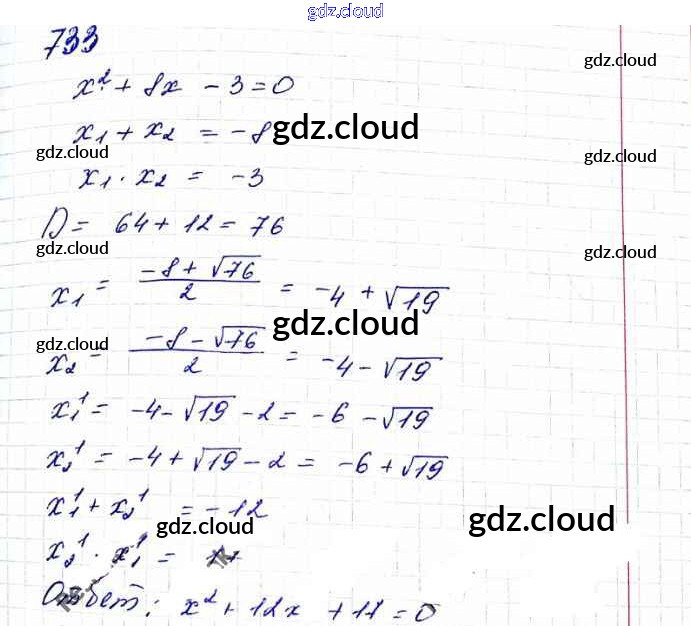 gdz.cloud
733
gdz.cloud
x² + 8x - 3 = 0
x₁ + x₂ = -8
gdz.cloud
gdz.cloud
gdz.cloud
x₁ · x₂ = -3
D = 64 + 12 = 76
gdz.cloud
gdz.cloud
x₁ = (-8 + √76)/2 = -4 + √19
gdz.cloud
gdz.cloud
gdz.cloud
x₂ = (-8 - √76)/2 = -4 - √19
x₁¹ = -4 - √19 - 2 = -6 - √19
x₂¹ = -4 + √19 - 2 = -6 + √19
x₁¹ + x₂¹ = -12
gdz.cloud
gdz.cloud
x₂¹ · x₁¹ =
Ответ: x² + 12x + 17 = 0